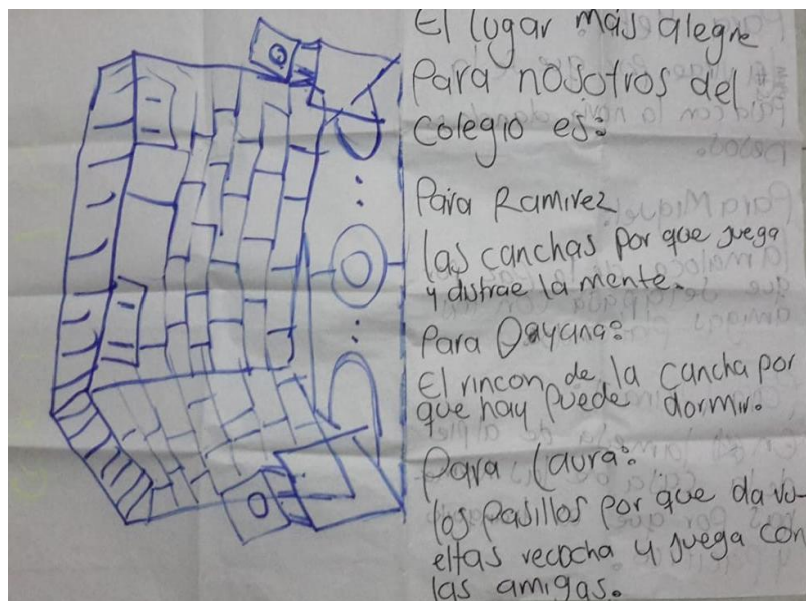 El lugar más alegre
Para nosotros del
colegio es:
Para Ramirez
las canchas por que juega
y distrae la mente.
Para Dayana:
El rincon de la cancha por
que hay puede dormir.
Para Laura:
los pasillos por que da vu-
eltas recocha y juega con
las amigas.